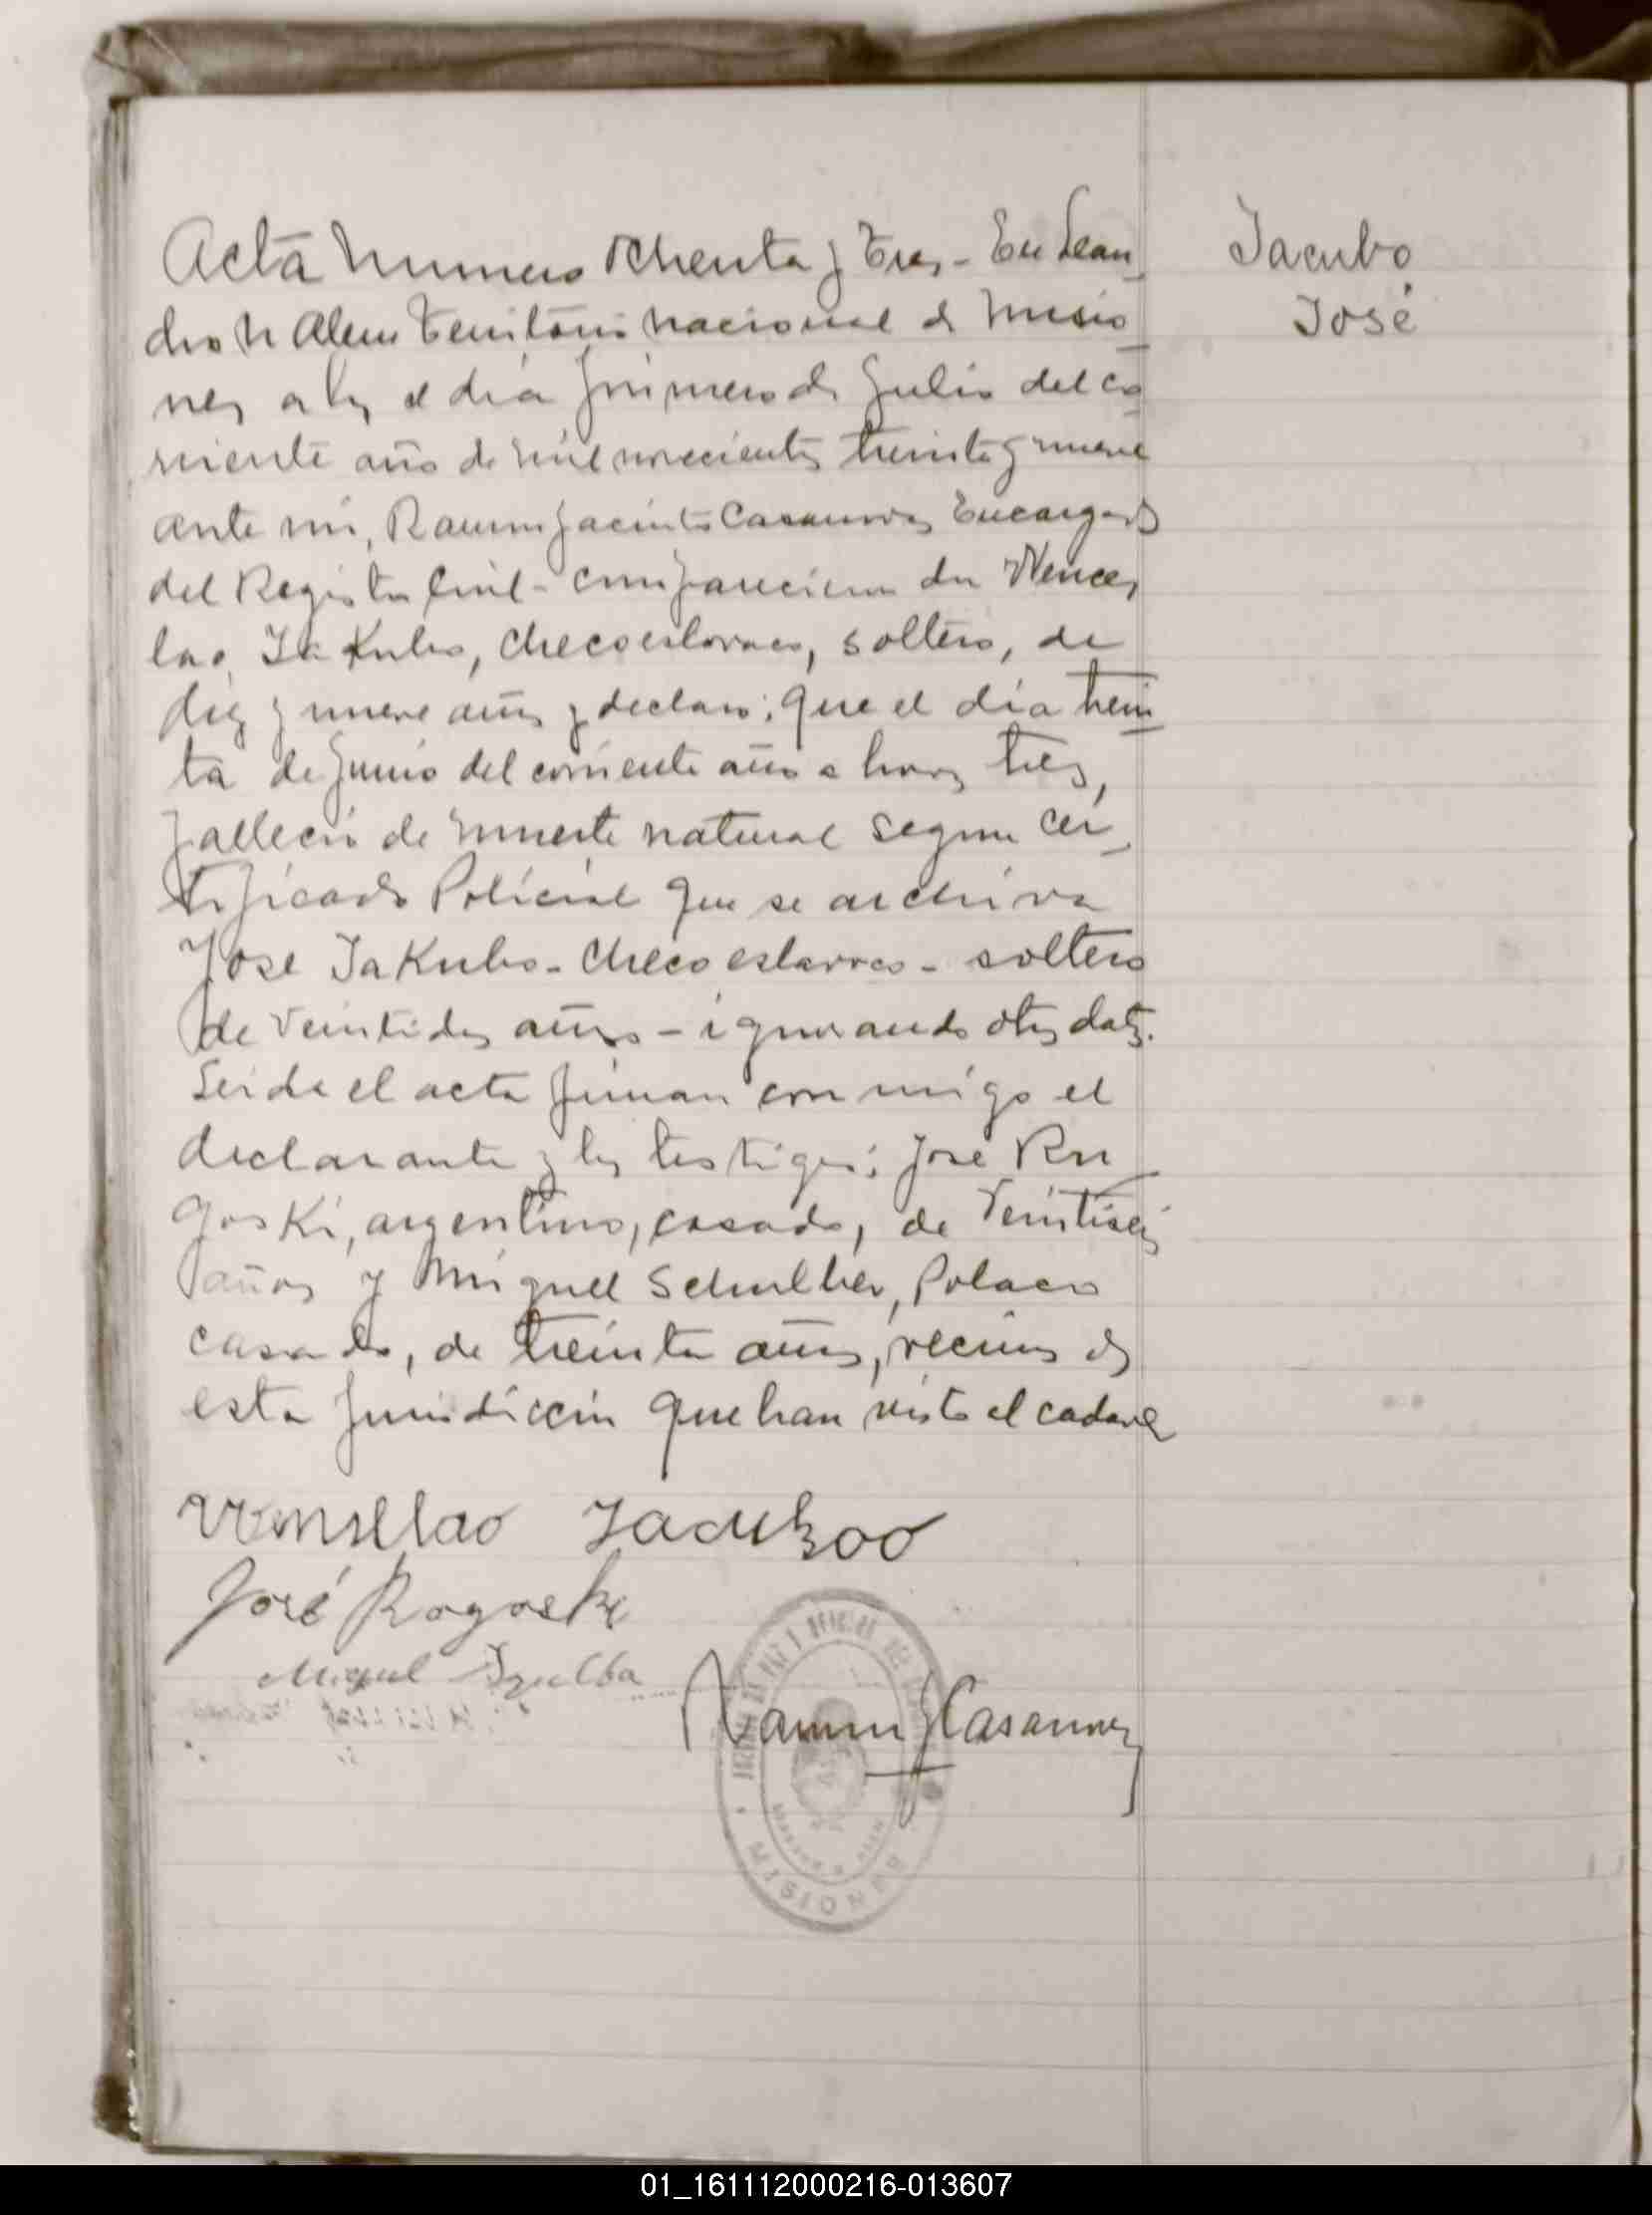 Acta Numero Ochenta y Tres - En Lean
Jacubo
José
dro N Alem Territorio Nacional de Misio
nes a los el dia primero de Julio del co
rriente año de mil novecientos treinta y nueve
ante mi, Ramon Jacinto Casanova, Encargado
del Registro Civil - comparecieron don Wences
lao Jakubo, Checoeslovaco, soltero, de
diez y nueve años y declaro: que el dia trein
ta de Junio del corriente año a horas tres,
fallecio de muerte natural segun cer
tificado Policial que se archiva
Jose Jakubo - Checoeslavaco - soltero
de veintidos años - ignorando otros datos.
Leida el acta firman con migo el
declarante y los testigos: José Ru
goski, argentino, casado, de veintiseis
años y Miguel Schulber, Polaco
casado, de treinta años, vecinos de
esta jurisdiccion que han visto el cadaver
Wenslao Jacuboo
José Rogoski
Miguel Szulba
Ramon J Casanova
MISIONES
01_161112000216-013607